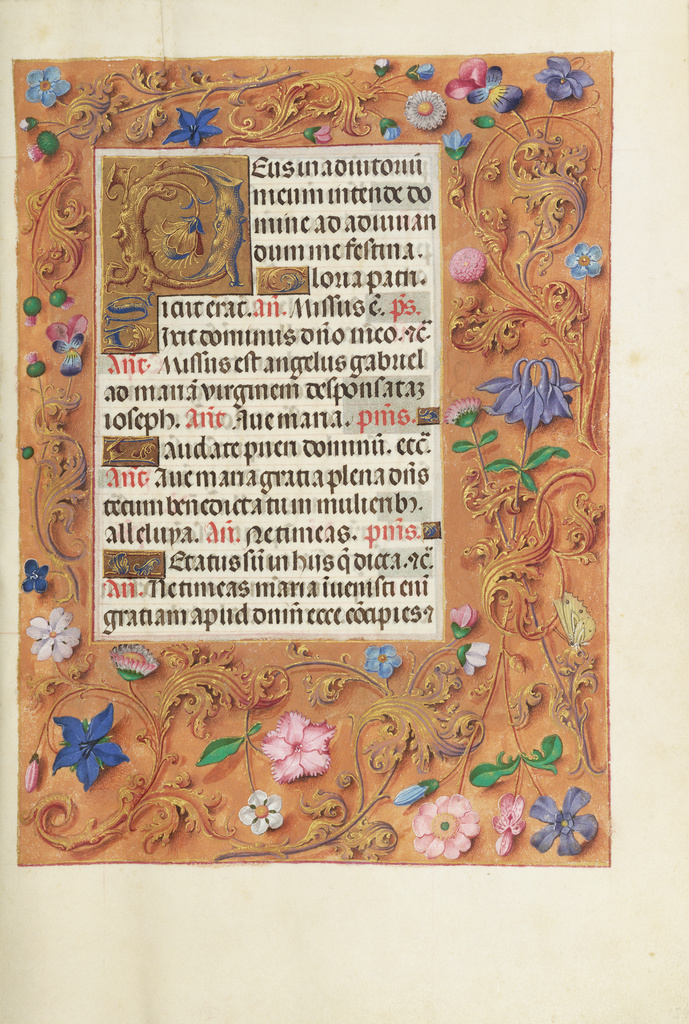 Deus in adiutoriū
meum intende do
mine ad adiuuan
dum me festina.
Gloria patri.
Sicut erat. an̄. Missus ē. p̄s.
Dixit dominus dn̄o meo. ⁊c̄.
Ant̄. Missus est angelus gabriel
ad mariā virginem desponsataꝫ
ioseph. Ant̄. Aue maria. pm̄s.
Laudate pueri dominū. etc̄.
Ant̄. Aue maria gratia plena dn̄s
tecum benedicta tu in mulierib⁹.
alleluya. An̄. Ne timeas. pm̄s.
Letatus sū in hiis q̄ dicta. ⁊c̄.
An̄. Ne timeas maria iuenisti eni̅
gratiam apud dom̄n ecce cōcipies ⁊